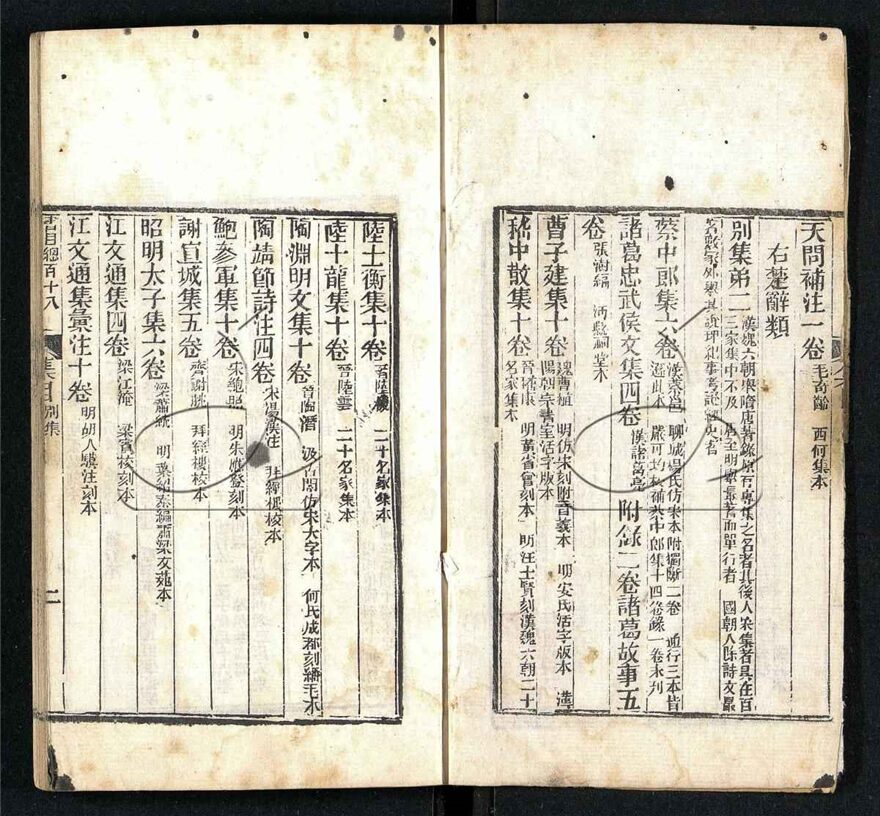 天問補注一卷毛奇齡 西河集本
右楚辭類
別集弟二漢魏六朝舉隋唐著錄原有專集之名者其後人衷集者具在百
三家集中不及 唐至明舉最著而單行者 國朝人除詩文最
著數家外舉其說理紀事考證經史者
蔡中郎集六卷漢蔡邕 聊城楊氏仿宋本附獨斷二卷 通行三本皆
遜此本 嚴可均校補蔡中郎集十四卷錄一卷未刊
諸葛忠武侯文集四卷漢諸葛亮附錄二卷諸葛故事五
卷張澍編 沔縣祠堂本
曹子建集十卷魏曹植 明仿宋刻附音義本 明安氏活字版本
陽朝宗書室活字版本
嵇中散集十卷晉嵇康 明黃省曾刻本 明汪士賢刻漢魏六朝二十
名家集本
陸士衡集十卷晉陸機 二十名家集本
陸士龍集十卷晉陸雲 二十名家集本
陶淵明文集十卷晉陶潛 汲古閣仿宋大字本 何氏成都刻繙毛本
陶靖節詩注四卷宋湯漢注 拜經樓校本
鮑參軍集十卷宋鮑照 明朱應登刻本
謝宣城集五卷齊謝朓 拜經樓校本
昭明太子集六卷梁蕭統 明葉紹泰編蕭梁文苑本
江文通集四卷梁江淹 梁賓校刻本
江文通集彙注十卷明胡人驥注刻本
集目別集
二